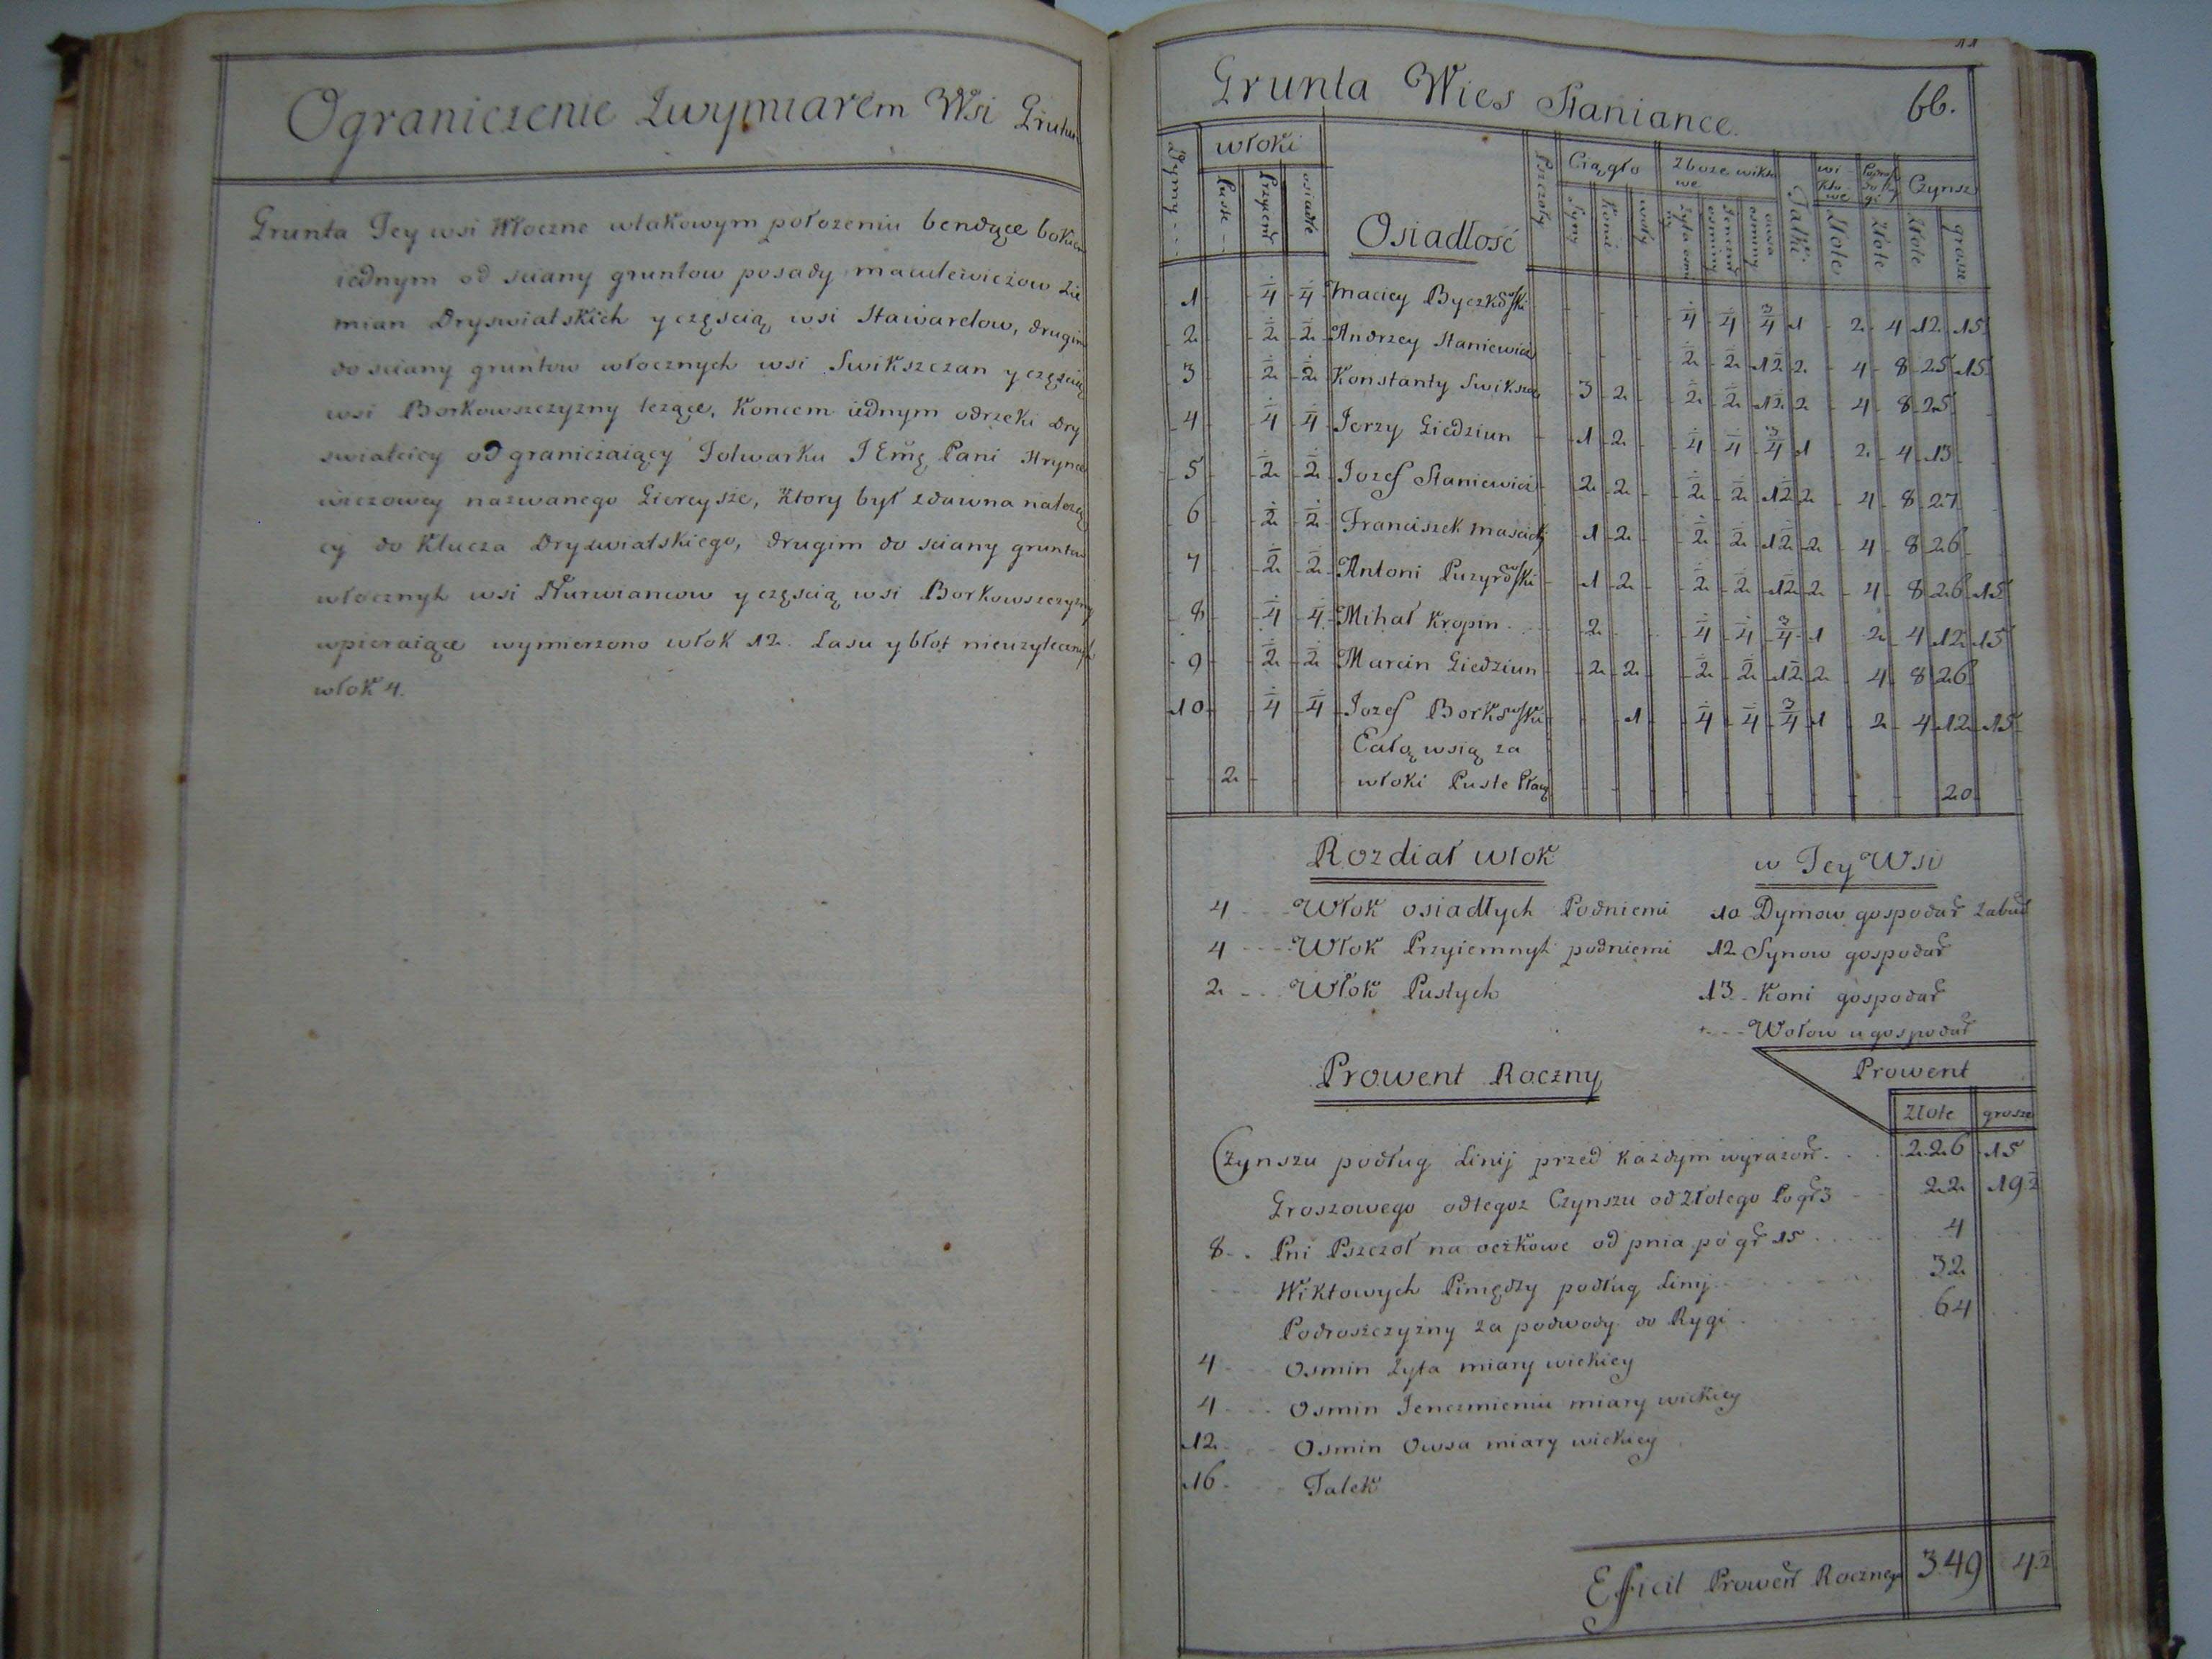 Ograniczenie Zwymiarem Wsi
Grunta Tey wsi Włoczne wtakowym położeniu bendące bokiem
iednym od sciany gruntow posady maculewiczow Zie
mian Dryswiatskich y częscią wsi Stawarelow, drugim
do sciany gruntow włocznych wsi Swikszczan y częscią
wsi Borkowszczyzny leżące, Koncem iednym odrzeki Dry
swiateicy od graniczaiący Folwarku JEmę Pani Hryne
wiczowey nazwanego Giereysze, Ktory był zdawna należą
cy do Klucza Dryswiatskiego, drugim do sciany gruntow
włocznyh wsi y częscią wsi Borkowszczyzny
wpieraiące wymierzono włok 12. Lasu y błot nieuzytecznyh
włok 4.
11
Grunta Wies Staniance.
66.
włoki
Puste
Przyiem
osiadłe
Osiadłosć
Pszczoły
Ciągło
Syny
Koni
woły
Zboże wikto
we
Żyta osmi
ny
Jenczmie
osminy
owsa
osminy
Talki
wi
kto
we
Złote
do Ry
gi
Złote
Czynsz
Złote
grosze
1 4 4 Maciey Byczkowski 4 4 3/4 1 2 4 12 15
2 2 2 Andrzey Staniewicz 2 2 12 2 4 8 25 15
3 2 2 Konstanty Swiksza 3 2 2 2 12 2 4 8 25
4 4 4 Jerzy Giedziun 1 2 4 4 3/4 1 2 4 13
5 2 2 Jozef Staniewicz 2 2 2 2 12 2 4 8 27
6 2 2 Franciszek 1 2 2 2 12 2 4 8 26
7 2 2 Antoni Puzyrowski 1 2 2 2 12 2 4 8 26 15
8 4 4 Mihał Kropin 2 4 4 3/4 1 2 4 12 15
9 2 2 Marcin Giedziun 2 2 2 2 12 2 4 8 26
10 4 4 Jozef Borkowski 1 4 4 3/4 1 2 4 12 15
Całą wsią za
2 włoki Puste Płacą 20
Rozdiał włok
4 Włok osiadłych Podniemi
4 Włok Przyiemnyh podniemi
2 Włok Pustych
w Tey Wsi
10 Dymow gospodar zabud
12 Synow gospodar
13 Koni gospodar
Wołow u gospodar
Prowent Roczny
Prowent
Złote grosze
Czynszu podług Linij przed każdym wyrażon 226 15
Groszowego odtegoz Czynszu od Złotego Po gr 3 22 19 2
8 Pni Pszczoł na oczkowe od pnia po gr 15 4
Wiktowych Pimędzy podług Linij 32
Podroszczyzny za podwody do Rygi 64
4 Osmin Żyta miary wiekiey
4 Osmin Jenczmieniu miary wiekiey
12 Osmin Owsa miary wiekiey
16 Talek
Efficit Prowent Rocznego 349 4 2